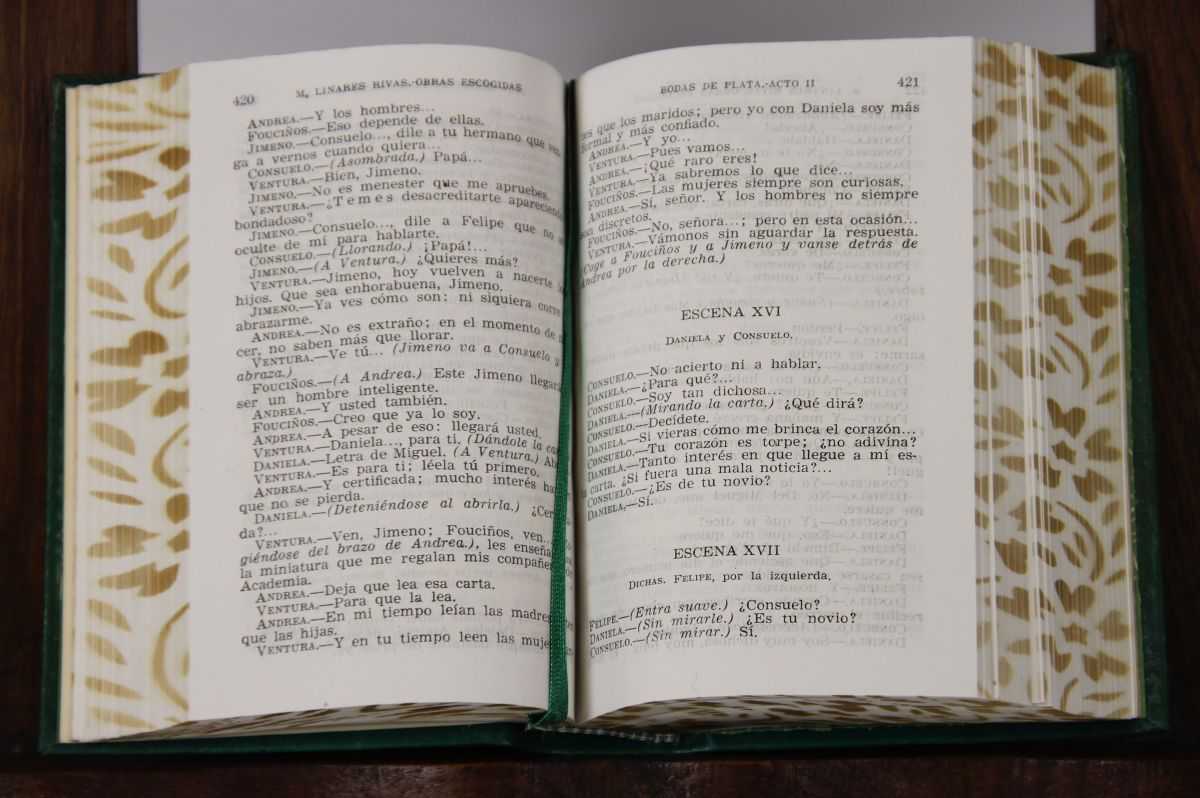 420 M. LINARES RIVAS.-OBRAS ESCOGIDAS
ANDREA.—Y los hombres...
FOUCIÑOS.—Eso depende de ellas.
JIMENO.—Consuelo..., dile a tu hermano que ven-
ga a vernos cuando quiera...
CONSUELO.—(Asombrada.) Papá...
VENTURA.—Bien, Jimeno.
JIMENO.—No es menester que me apruebes.
VENTURA.—¿Temes desacreditarte apareciendo
bondadoso?
JIMENO.—Consuelo..., dile a Felipe que no se
oculte de mí para hablarte.
CONSUELO.—(Llorando.) ¡Papá!...
JIMENO.—(A Ventura.) ¿Quieres más?
VENTURA.—Jimeno, hoy vuelven a nacerte
hijos. Que sea enhorabuena, Jimeno.
JIMENO.—Ya ves cómo son: ni siquiera corre
abrazarme.
ANDREA.—No es extraño; en el momento de
cer, no saben más que llorar.
VENTURA.—Ve tú... (Jimeno va a Consuelo y
abraza.)
FOUCIÑOS.—(A Andrea.) Este Jimeno llegará
ser un hombre inteligente.
ANDREA.—Y usted también.
FOUCIÑOS.—Creo que ya lo soy.
ANDREA.—A pesar de eso: llegará usted.
VENTURA.—Daniela..., para ti. (Dándole la
DANIELA.—Letra de Miguel. (A Ventura.)
VENTURA.—Es para ti; léela tú primero.
ANDREA.—Y certificada; mucho interés
que no se pierda.
DANIELA.—(Deteniéndose al abrirla.)
da?...
VENTURA.—Ven, Jimeno; Fouciños, ven...
giéndose del brazo de Andrea.), les
la miniatura que me regalan mis
Academia.
ANDREA.—Deja que lea esa carta.
VENTURA.—Para que la lea.
ANDREA.—En mi tiempo leían las madres
que las hijas.
VENTURA.—Y en tu tiempo leen las
BODAS DE PLATA.-ACTO II 421
res que los maridos; pero yo con Daniela soy más
formal y más confiado.
ANDREA.—Y yo...
VENTURA.—Pues vamos...
ANDREA.—¡Qué raro eres!
VENTURA.—Ya sabremos lo que dice...
FOUCIÑOS.—Las mujeres siempre son curiosas.
ANDREA.—Sí, señor. Y los hombres no siempre
son discretos.
FOUCIÑOS.—No, señora...; pero en esta ocasión...
VENTURA.—Vámonos sin aguardar la respuesta.
(Coge a Fouciños y a Jimeno y vanse detrás de
Andrea por la derecha.)
ESCENA XVI
DANIELA y CONSUELO.
CONSUELO.—No acierto ni a hablar.
DANIELA.—¿Para qué?...
CONSUELO.—Soy tan dichosa...
DANIELA.—(Mirando la carta.) ¿Qué dirá?
CONSUELO.—Decídete.
DANIELA.—Si vieras cómo me brinca el corazón...
CONSUELO.—Tu corazón es torpe; ¿no adivina?
DANIELA.—Tanto interés en que llegue a mí es-
ta carta. ¿Si fuera una mala noticia?...
CONSUELO.—¿Es de tu novio?
DANIELA.—Sí.
ESCENA XVII
DICHAS. FELIPE, por la izquierda.
FELIPE.—(Entra suave.) ¿Consuelo?
DANIELA.—(Sin mirarle.) ¿Es tu novio?
CONSUELO.—(Sin mirar.) Sí.